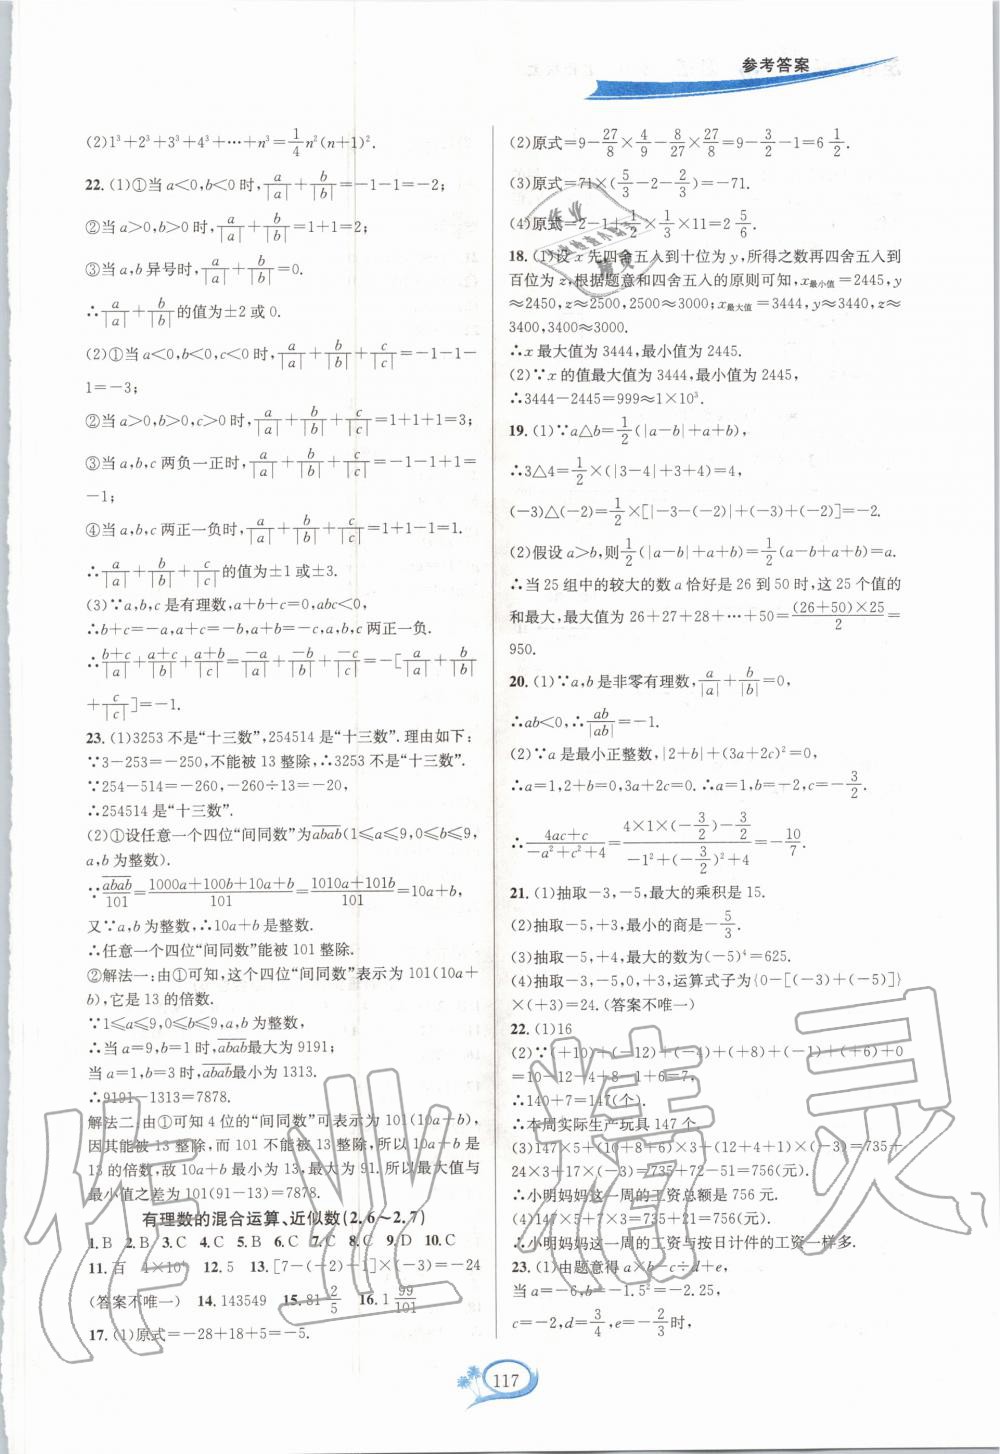 参考答案
(2)1³+2³+3³+4³+…+n³=1/4 n²(n+1)².
22.(1)①当a<0,b<0时,a/|a|+b/|b|=-1-1=-2;
②当a>0,b>0时,a/|a|+b/|b|=1+1=2;
③当a,b异号时,a/|a|+b/|b|=0.
∴a/|a|+b/|b|的值为±2或0.
(2)①当a<0,b<0,c<0时,a/|a|+b/|b|+c/|c|=-1-1-
1=-3;
②当a>0,b>0,c>0时,a/|a|+b/|b|+c/|c|=1+1+1=3;
③当a,b,c两负一正时,a/|a|+b/|b|+c/|c|=-1-1+1=
-1;
④当a,b,c两正一负时,a/|a|+b/|b|+c/|c|=-1+1+1=1.
∴a/|a|+b/|b|+c/|c|的值为±1或±3.
(3)∵a,b,c是有理数,a+b+c=0,abc<0,
∴b+c=-a,a+c=-b,a+b=-c,a,b,c两正一负.
∴(b+c)/|a|+(a+c)/|b|+(a+b)/|c|=-a/|a|+-b/|b|+-c/|c|=-[a/|a|+b/|b|
+c/|c|]=-1.
23.(1)3253不是“十三数”,254514是“十三数”.理由如下:
∵3-253=-250,不能被13整除,∴3253不是“十三数”.
∵254-514=-260,-260÷13=-20,
∴254514是“十三数”.
(2)①设任意一个四位“间同数”为abab(1≤a≤9,0≤b≤9,
a,b为整数).
∵abab/101=(1000a+100b+10a+b)/101=(1010a+101b)/101=10a+b,
又∵a,b为整数,∴10a+b是整数.
∴任意一个四位“间同数”能被101整除.
②解法一:由①可知,这个四位“间同数”表示为101(10a+
b),它是13的倍数.
∵1≤a≤9,0≤b≤9,a,b为整数,
∴当a=9,b=1时,abab最大为9191;
当a=1,b=3时,abab最小为1313.
∴9191-1313=7878.
解法二:由①可知4位的“间同数”可表示为101(10a+b),
因其能被13整除,而101不能被13整除,所以10a+b是
13的倍数,故10a+b最小为13,最大为91.所以最大值与
最小值之差为101(91-13)=7878.
有理数的混合运算、近似数(2.6~2.7)
1.B 2.B 3.C 4.C 5.B 6.C 7.C 8.C 9.D 10.C
11.百 4×10⁴ 12.5 13.[7-(-2)-1]×(-3)=-24
(答案不唯一) 14.143549 15.81 2/5 16.1 99/101
17.(1)原式=-28+18+5=-5.
(2)原式=9-27/8×4/9-8/27×27/8=9-3/2-1=6 1/2.
(3)原式=71×(5/3-2-2/3)=-71.
(4)原式=2-1+1/2×1/3×11=2 5/6.
18.(1)设x先四舍五入到十位为y,所得之数再四舍五入到
百位为z,根据题意和四舍五入的原则可知,x最小值=2445,y
≈2450,z≈2500,2500≈3000;x最大值=3444,y≈3440,z≈
3400,3400≈3000.
∴x最大值为3444,最小值为2445.
(2)∵x的值最大值为3444,最小值为2445,
∴3444-2445=999≈1×10³.
19.(1)∵a△b=1/2(|a-b|+a+b),
∴3△4=1/2×(|3-4|+3+4)=4,
(-3)△(-2)=1/2×[|-3-(-2)|+(-3)+(-2)]=-2.
(2)假设a>b,则1/2(|a-b|+a+b)=1/2(a-b+a+b)=a.
∴当25组中的较大的数a恰好是26到50时,这25个值的
和最大,最大值为26+27+28+…+50=(26+50)×25/2=
950.
20.(1)∵a,b是非零有理数,a/|a|+b/|b|=0,
∴ab<0,∴ab/|ab|=-1.
(2)∵a是最小正整数,|2+b|+(3a+2c)²=0,
∴a=1,2+b=0,3a+2c=0.∴a=1,b=-2,c=-3/2.
∴(4ac+c)/(-a²+c²+4)=(4×1×(-3/2)-3/2)/(-1²+(-3/2)²+4)=-10/7.
21.(1)抽取-3,-5,最大的乘积是15.
(2)抽取-5,+3,最小的商是-5/3.
(3)抽取-5,+4,最大的数为(-5)⁴=625.
(4)抽取-3,-5,0,+3,运算式子为{0-[(-3)+(-5)]}
×(+3)=24.(答案不唯一)
22.(1)16
(2)∵(+10)+(-12)+(-4)+(+8)+(-1)+(+6)+0
=10-12-4+8-1+6=7,
∴140+7=147(个).
∴本周实际生产玩具147个.
(3)147×5+(10+8+6)×3+(12+4+1)×(-3)=735+
24×3+17×(-3)=735+72-51=756(元).
∴小明妈妈这一周的工资总额是756元.
(4)147×5+7×3=735+21=756(元).
∴小明妈妈这一周的工资与按日计件的工资一样多.
23.(1)由题意得a×b-c÷d+e,
当a=-6,b=-1.5²=-2.25,
c=-2,d=3/4,e=-2/3时,
117
作业精灵